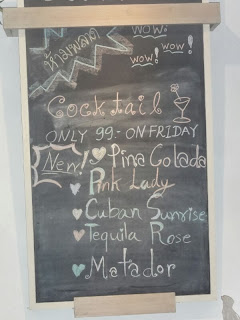 ห้ามพลาด
WOW!
WOW!
WOW!
Cocktail
ONLY 99.- ON FRIDAY
New! Pina Colada
Pink Lady
Cuban Sunrise
Tequila Rose
Matador